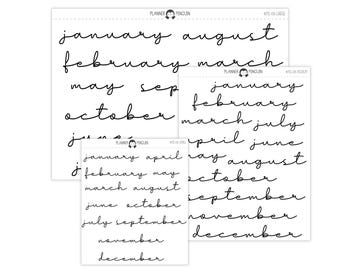 PLANNER PENGUIN
january august
february march
may sep
october
june
PLANNER PENGUIN
january
february
march july
april june
may
august
october
september
november
december
PLANNER PENGUIN
january april
february may
march august
june october
july september
november
december